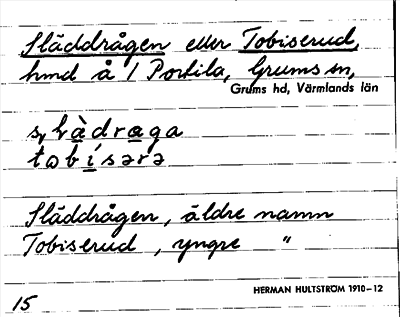 Släddrågen eller Tobiserud,
hmd å 1 Portila, Grums sn,
Grums hd, Värmlands län
Släddrågen, äldre namn
Tobiserud, yngre "
HERMAN HULTSTRÖM 1910–12
15